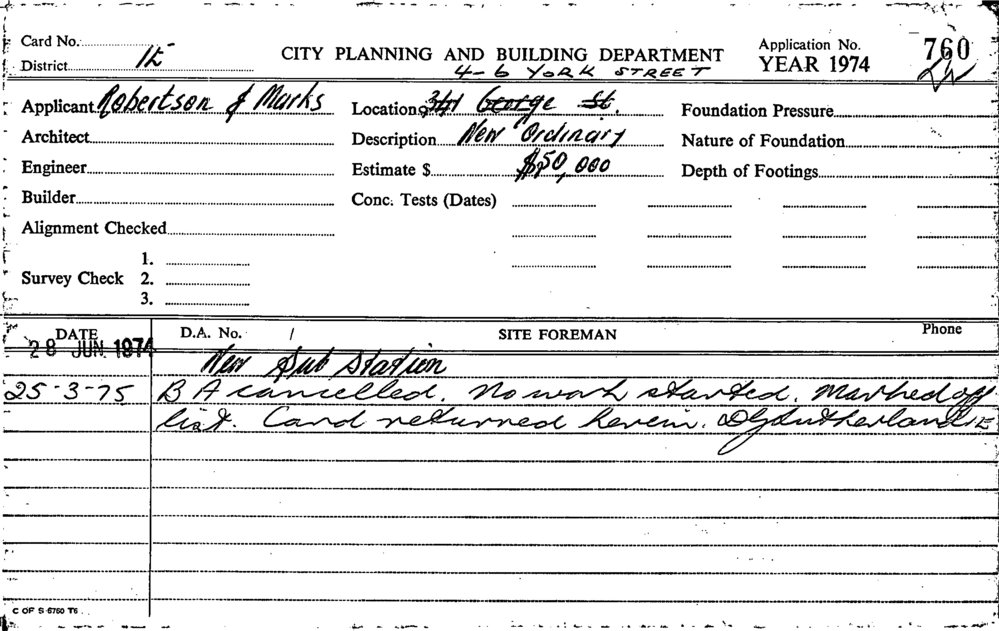 Card No.
District 1E
CITY PLANNING AND BUILDING DEPARTMENT
4-6 YORK STREET
Application No. 760
YEAR 1974
Applicant Robertson & Marks
Location 341 George St.
Foundation Pressure
Architect
Description New Ordinary
Nature of Foundation
Engineer
Estimate $ $50,000
Depth of Footings
Builder
Conc. Tests (Dates)
Alignment Checked
Survey Check 1.
2.
3.
DATE D.A. No. / SITE FOREMAN Phone
28 JUN 1974 New Sub Station
25-3-75 B A cancelled. No work started. Marked off
list. Card returned herein. DGSutherland 1E
C OF S 6760 T6